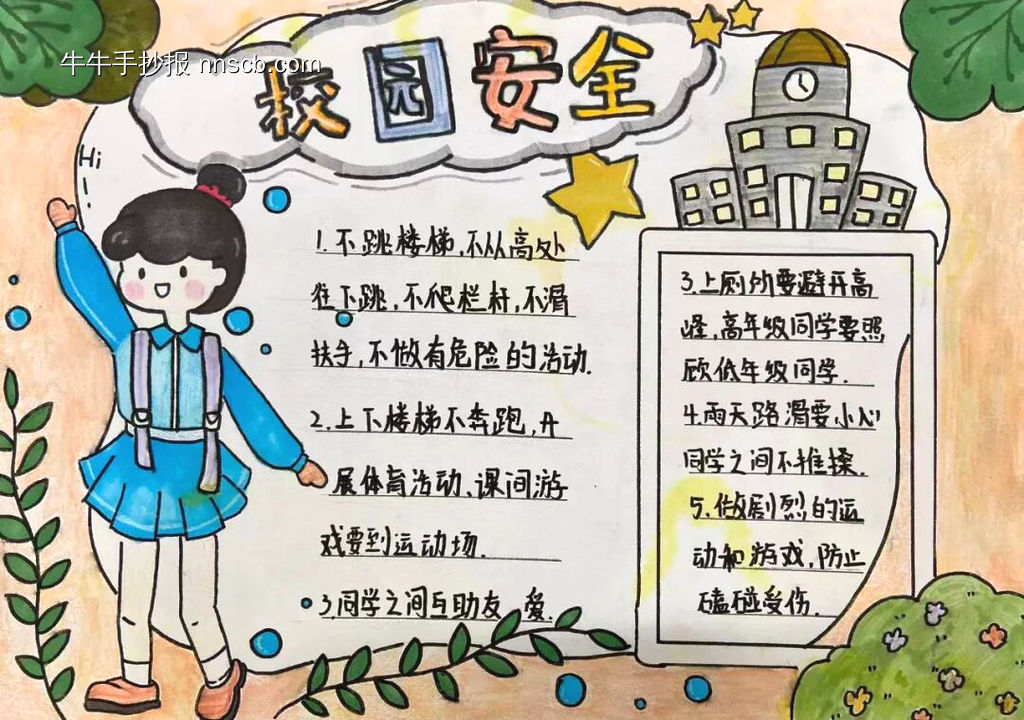 牛牛手抄报 nnscb.com
校园安全
Hi
1.不跳楼梯,不从高处
往下跳,不爬栏杆,不滑
扶手,不做有危险的活动.
2.上下楼梯不奔跑,开
展体育活动、课间游
戏要到运动场.
3.同学之间互助友爱.
3.上厕所要避开高
峰,高年级同学要照
顾低年级同学.
4.雨天路滑要小心
同学之间不推搡.
5.做剧烈的运
动和游戏,防止
磕碰受伤.